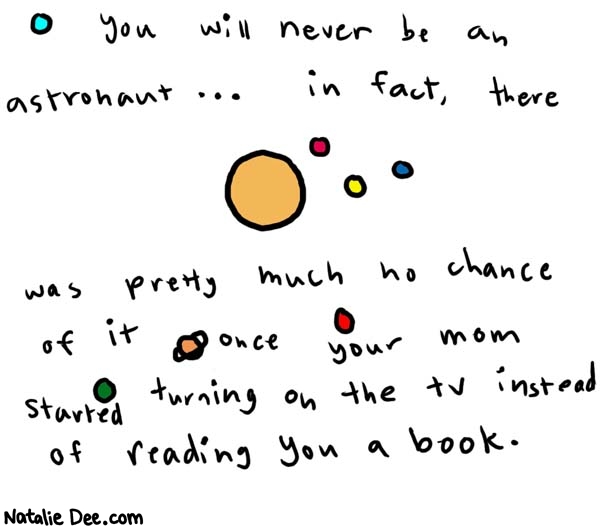 you will never be an
astronaut ... in fact, there
was pretty much no chance
of it once your mom
started turning on the tv instead
of reading you a book.
Natalie Dee.com